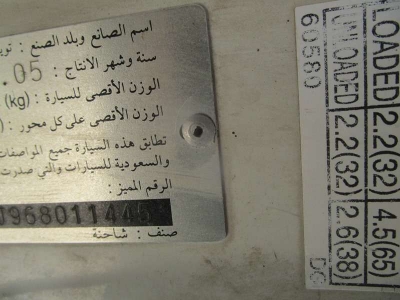 اسم الصانع وبلد الصنع :
سنة وشهر الانتاج : .05
الوزن الأقصى للسيارة : (kg)
الوزن الأقصى على كل محور :
تطابق هذه السيارة جميع المواصفات
والسعودية للسيارات والتي صدرت
الرقم المميز :
J968011445
صنف : شاحنة
LOADED 2.2(32) 4.5(65)
UNLOADED 2.2(32) 2.6(38)
60580 DC